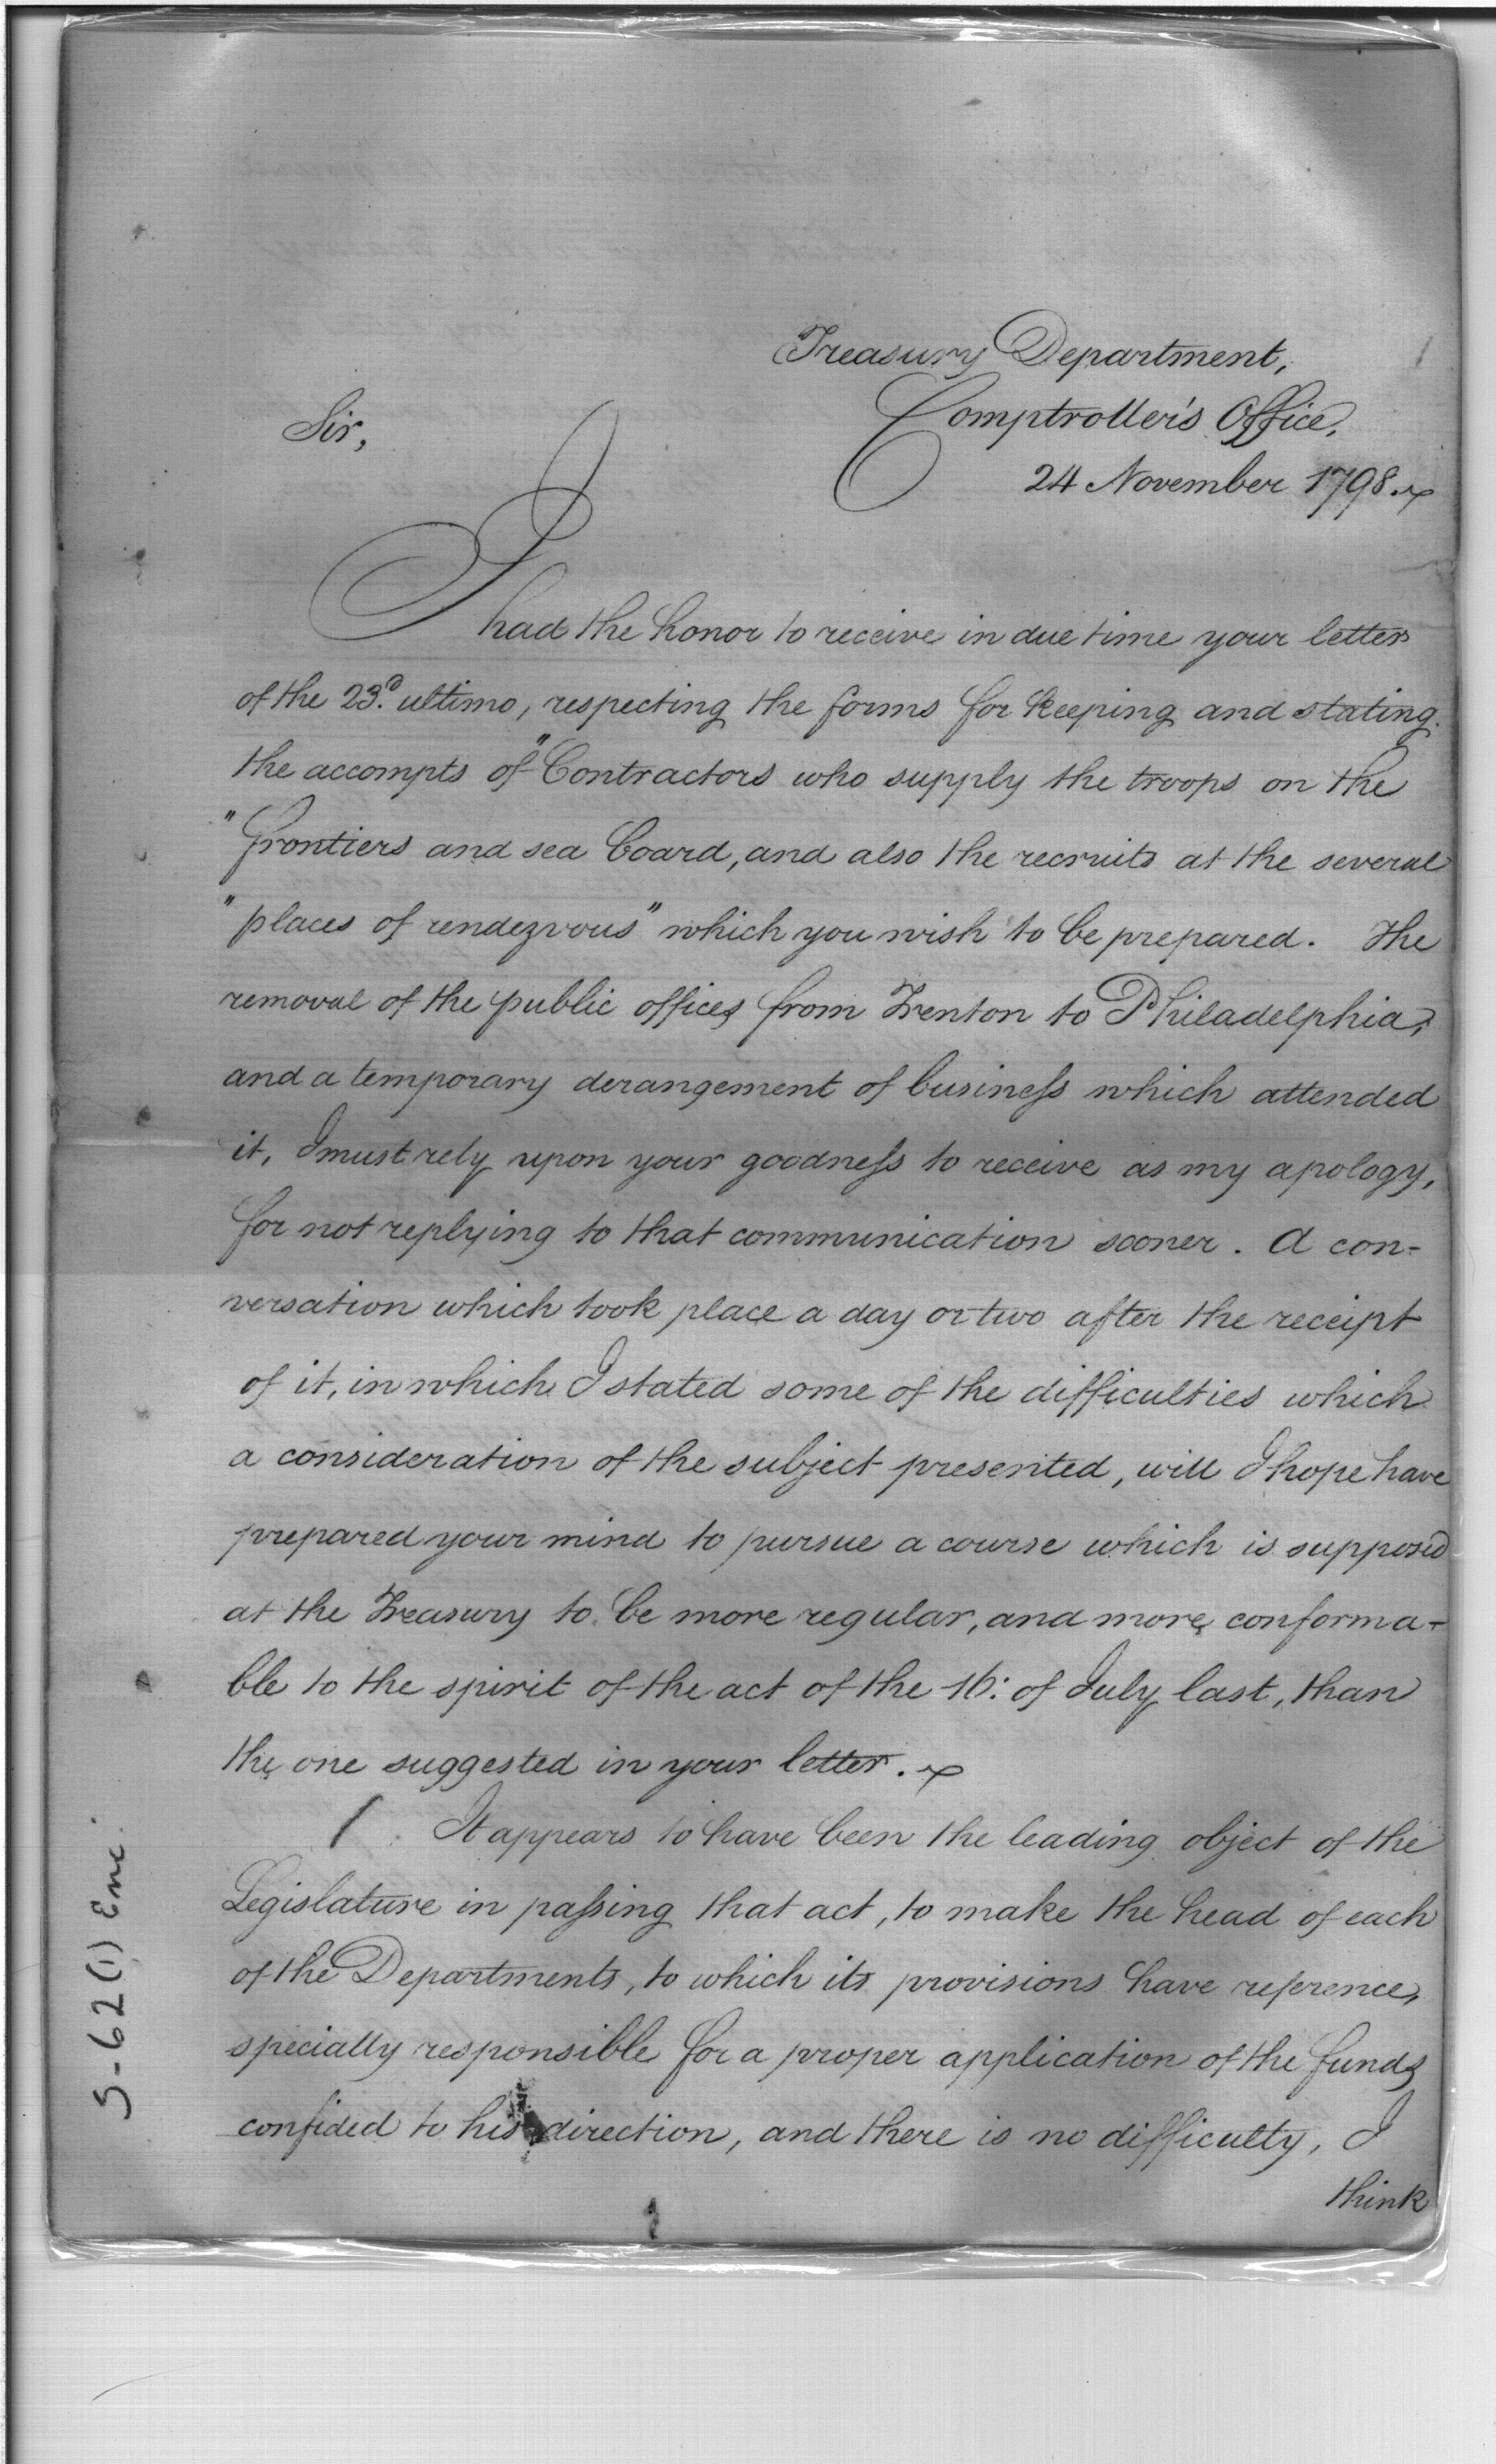 Treasury Department,
Comptroller's Office,
24 November 1798.
Sir,
I had the honor to receive in due time your letter
of the 23.d ultimo, respecting the forms for keeping and stating
the accompts of "Contractors who supply the troops on the
"frontiers and sea board, and also the recruits at the several
"places of rendezvous" which you wish to be prepared. The
removal of the public offices from Trenton to Philadelphia,
and a temporary derangement of business which attended
it, I must rely upon your goodness to receive as my apology,
for not replying to that communication sooner. A con-
versation which took place a day or two after the receipt
of it, in which I stated some of the difficulties which
a consideration of the subject presented, will I hope have
prepared your mind to pursue a course which is supposed
at the Treasury to be more regular, and more conforma-
ble to the spirit of the act of the 16: of July last, than
the one suggested in your letter.
It appears to have been the leading object of the
Legislature in passing that act, to make the head of each
of the Departments, to which its provisions have reference,
specially responsible for a proper application of the funds
confided to his direction, and there is no difficulty, I
think
5-62(1) Enc.